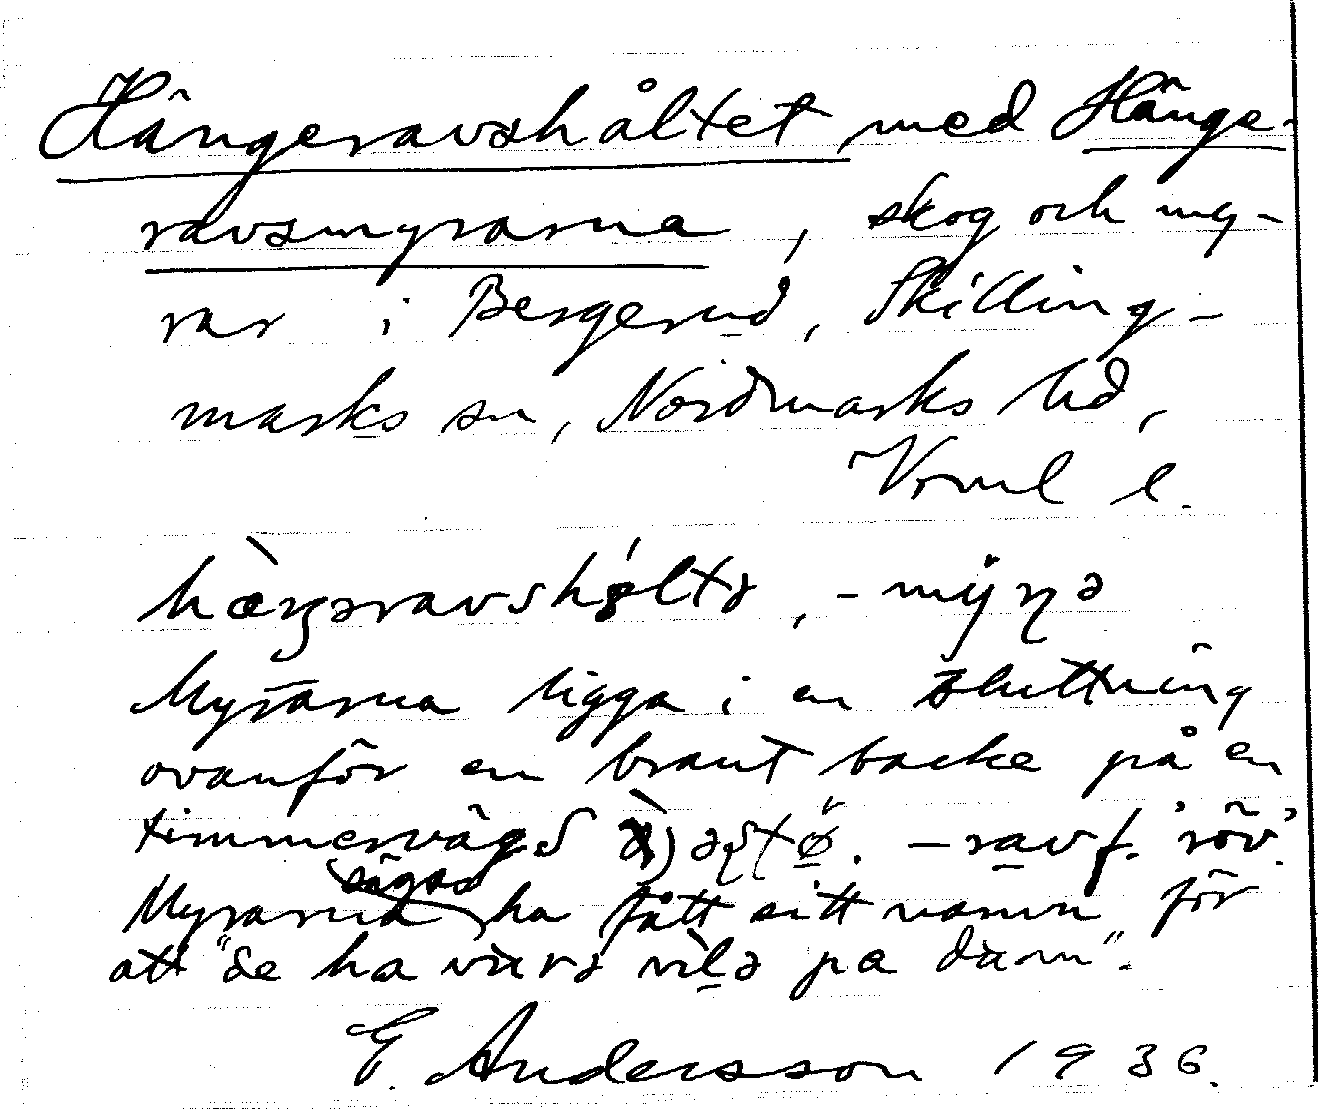 Hängeravshåltet, med Hänge-
ravsmyrarna, skog och my-
rar i Bergerud, Skilling-
marks sn, Nordmarks hd,
Vrml l.
hæŋəravshøltə, -myɳə
Myrarna ligga i en sluttning
ovanför en brant backe på en
timmerväg -rav f. 'röv'.
Myrarna sägas ha fått sitt namn för
att "de ha vɯrə vilə pa dɯm".
E. Andersson 1936.